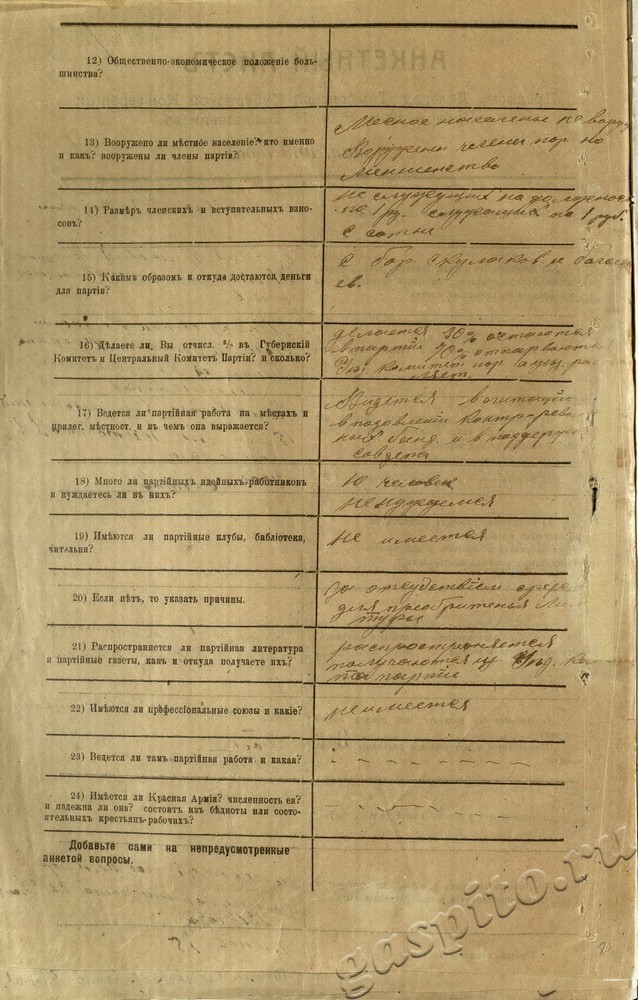 12) Общественно-экономическое положеніе боль-
шинства?
13) Вооружено ли мѣстное населеніе? кто именно
и какъ? вооружены ли члены партіи?
Месное население не воору
Вооружены члены пар. но
меншенство
14) Размѣръ членскихъ и вступительныхъ взно-
совъ?
не служущих на должнос
по 1 ру. служащих по 1 руб.
с сотни
15) Какимъ образомъ и откуда достаются деньги
для партіи?
с кулаков и богат
ев.
16) Дѣлаете ли Вы отчисл. % въ Губернскій
Комитетъ и Центральный Комитетъ Партіи? и сколько?
делается 30% остаются
в партіи 70% отправляются
комитет пар.
17) Ведется ли партійная работа на мѣстахъ и
прилег. мѣстност. и въ чемъ она выражается?
Видется в агитации
контр-рево
банд и в поддерж
совдепа
18) Много ли партійныхъ идейныхъ работниковъ
и нуждаетесь ли въ нихъ?
10 человек
не нуждаемся
19) Имѣются ли партійные клубы, библіотека,
читальня?
не имеется
20) Если нѣтъ, то указать причины.
За отсудствіем сред
для приобритенья Ли
туры
21) Распространяется ли партійная литература
и партійные газеты, какъ и откуда получаете ихъ?
распространяется
из Уѣзд. Ко
та партіи
22) Имѣются ли професcіональные союзы и какіе?
не имеется
23) Ведется ли тамъ партійная работа и какая?
24) Имѣется ли Красная Армія? численность ея?
и надежна ли она? состоитъ изъ бѣдноты или состо-
ятельныхъ крестьянъ-рабочихъ?
Добавьте сами на непредусмотренные
анкетой вопросы.
gaspito.ru